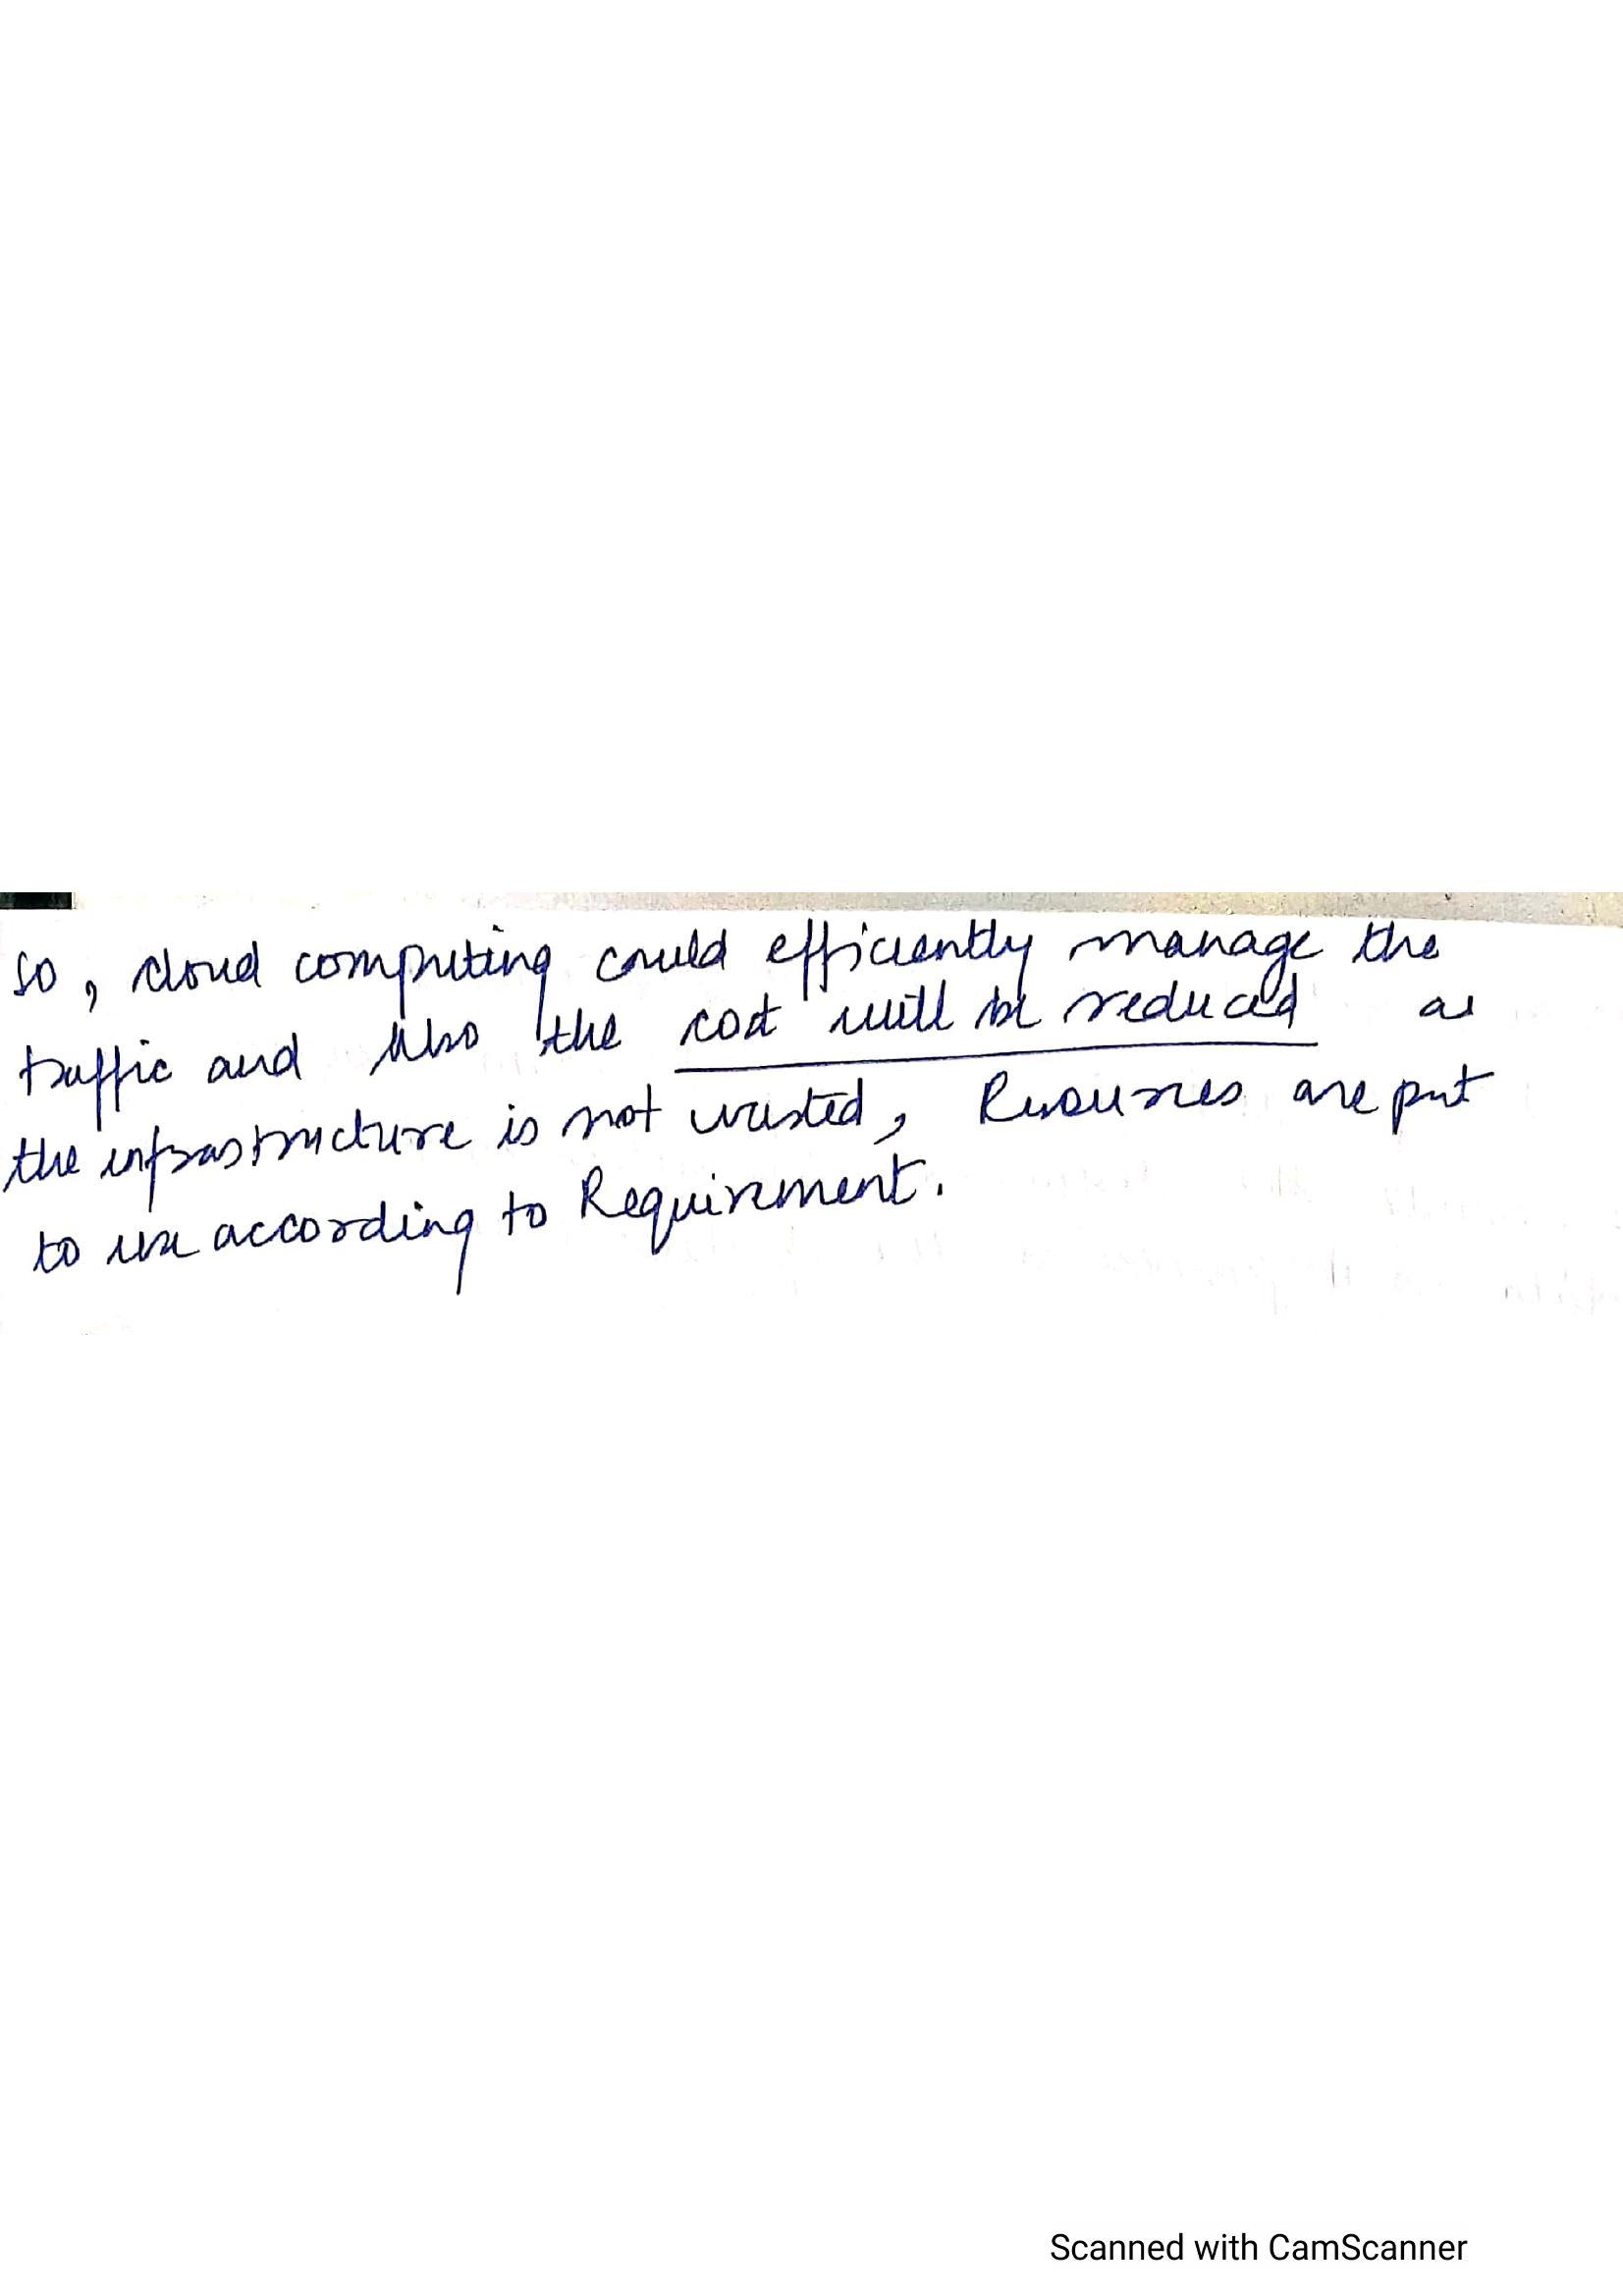 so, cloud computing could efficiently manage the
traffic and also the cost will be reduced as
the infrastructure is not wasted, Resources are put
to use according to Requirement.
Scanned with CamScanner